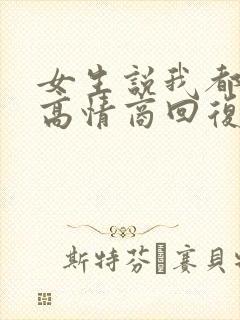 女生説我都
高情商回復
斯特芬 賽貝